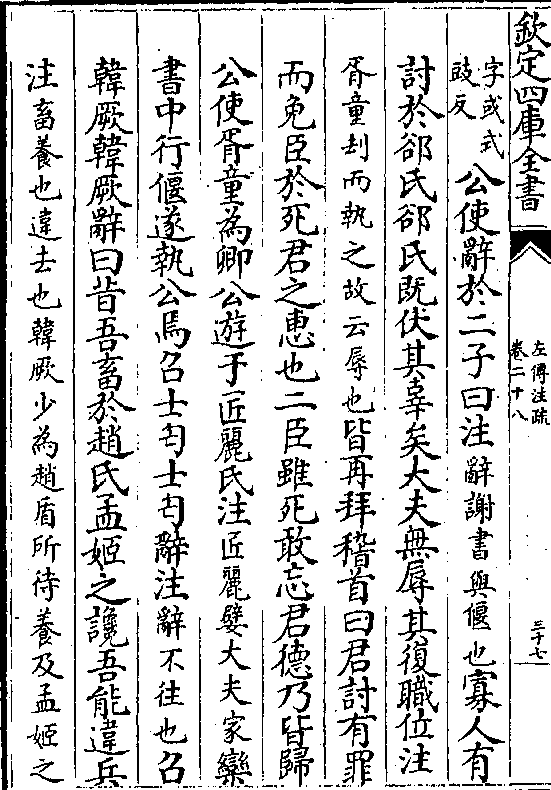 欽定四庫全書
左傳注疏
卷二十八
三十七
字或式
豉反
公使辭於二子曰注辭謝書與偃也寡人有
討於郤氏郤氏既伏其辜矣大夫無辱其復職位注
胥童刦而執之故云辱也皆再拜稽首曰君討有罪
而免臣於死君之惠也二臣雖死敢忘君德乃皆歸
公使胥童為卿公遊于匠麗氏注匠麗嬖大夫家欒
書中行偃遂執公焉召士匄士匄辭注辭不往也召
韓厥韓厥辭曰昔吾畜於趙氏孟姬之讒吾能違兵
注畜養也違去也韓厥少為趙盾所待養及孟姬之